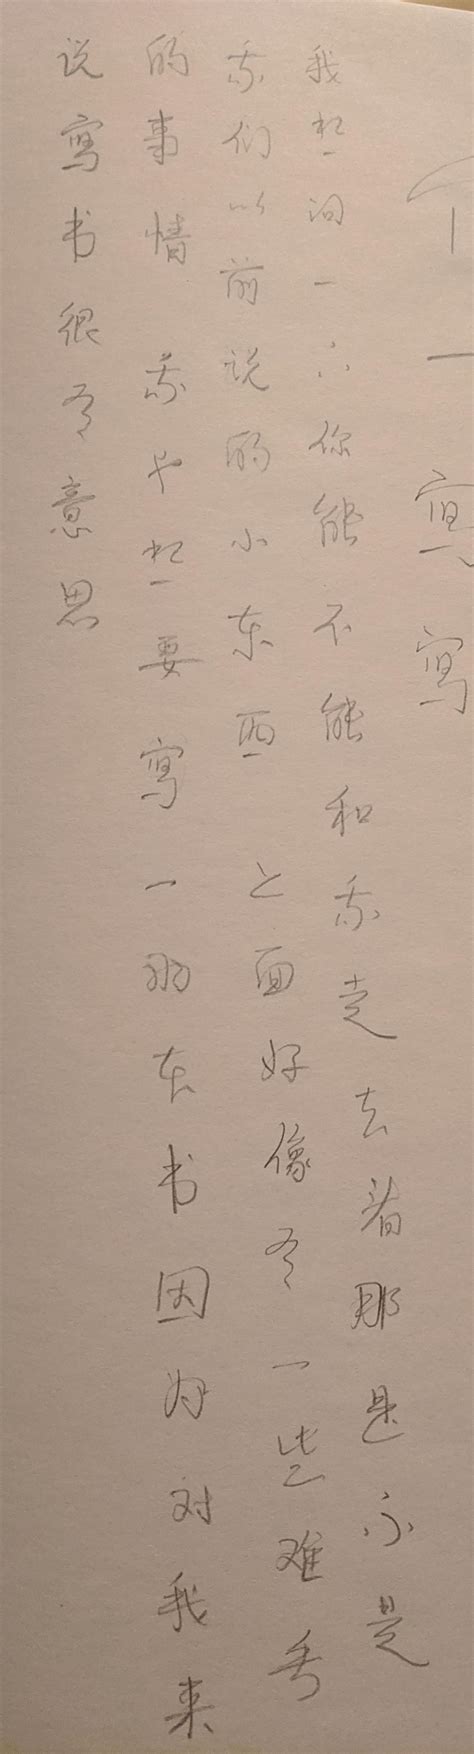 一寫寫
我想问一下你能不能和我走去看那是不是
我们以前说的小东西 上面好像有一些难看
的事情 我也想要寫一本书因为对我来
说寫书很有意思